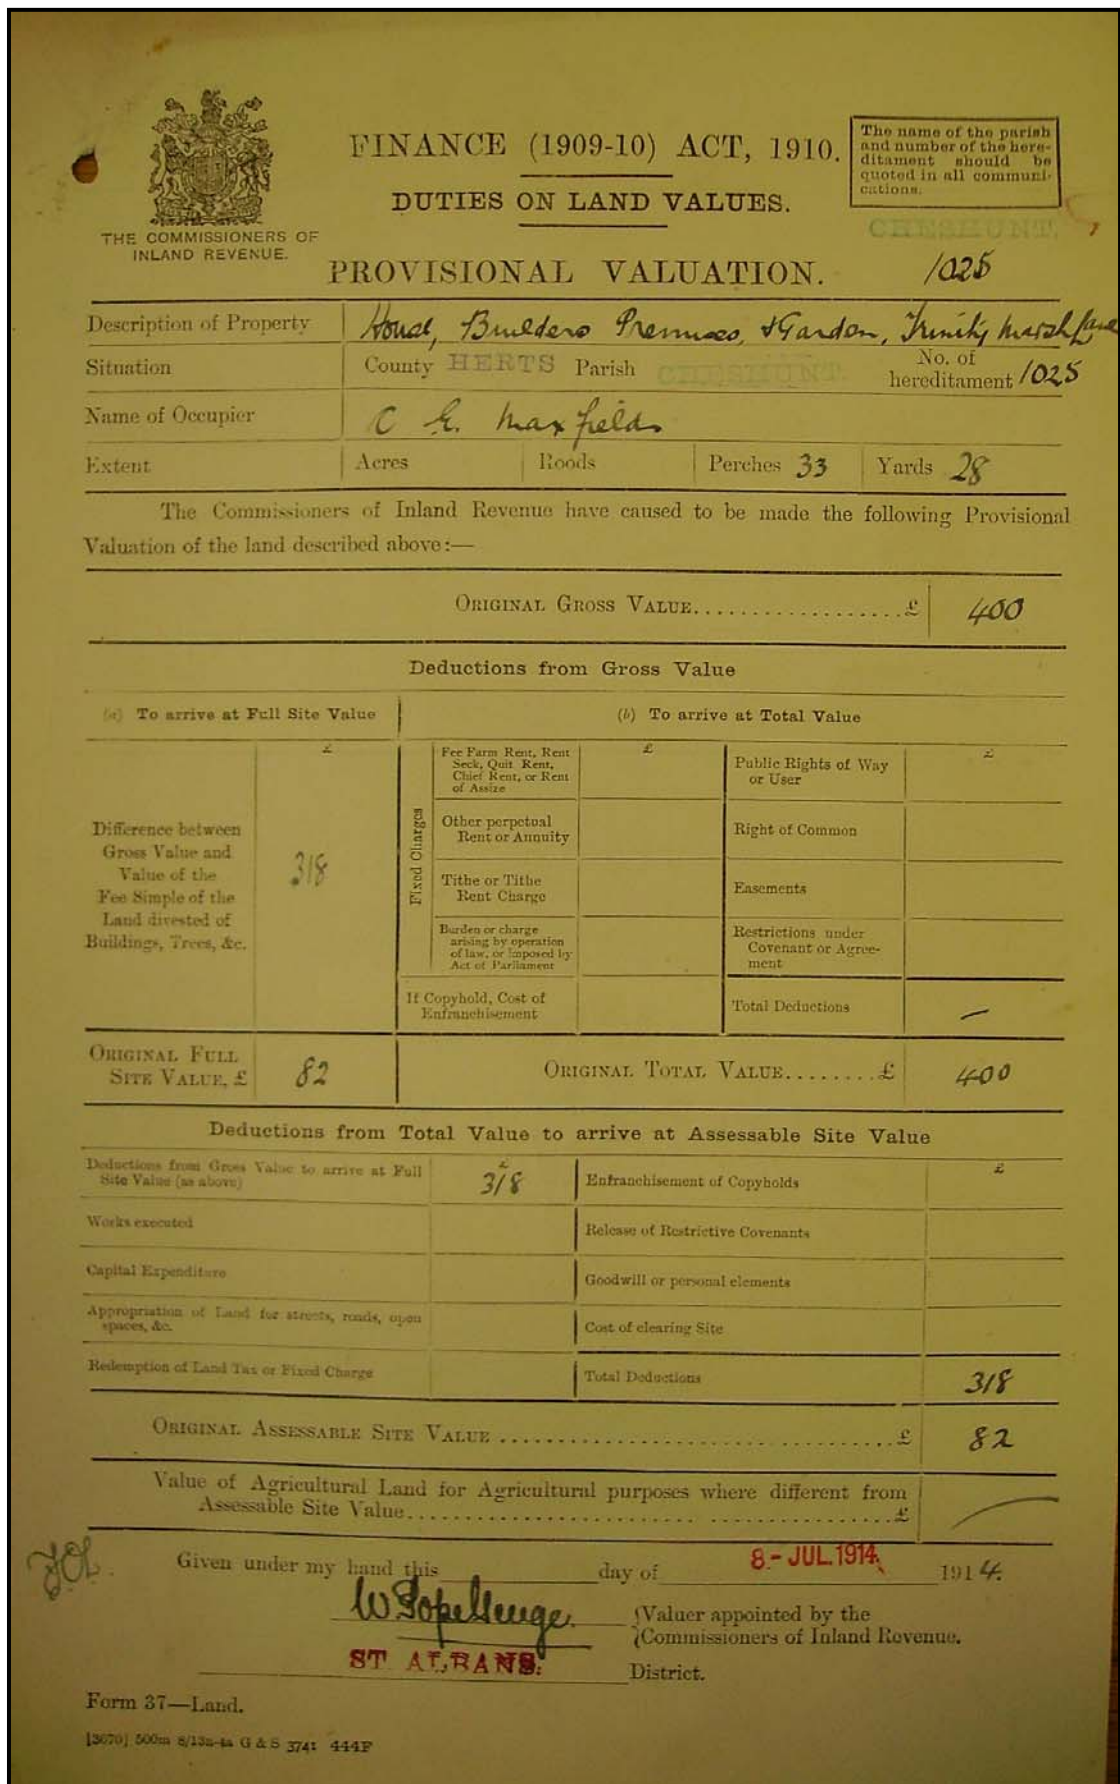 THE COMMISSIONERS OF
INLAND REVENUE.
FINANCE (1909-10) ACT, 1910.
DUTIES ON LAND VALUES.
PROVISIONAL VALUATION.
The name of the parish
and number of the here-
ditament should be
quoted in all communi-
cations.
CHESHUNT.
1025
Description of Property House, Builders Premises, & Garden, Trinity Marsh Lane
Situation County HERTS Parish CHESHUNT. No. of
hereditament 1025
Name of Occupier C E. Maxfield
Extent Acres Roods Perches 33 Yards 28
The Commissioners of Inland Revenue have caused to be made the following Provisional
Valuation of the land described above:—
ORIGINAL GROSS VALUE.................. £ 400
Deductions from Gross Value
(a) To arrive at Full Site Value
(b) To arrive at Total Value
£
Difference between
Gross Value and
Value of the
Fee Simple of the
Land divested of
Buildings, Trees, &c.
318
Fixed Charges
Fee Farm Rent, Rent
Seck, Quit Rent,
Chief Rent, or Rent
of Assize
£
Other perpetual
Rent or Annuity
Tithe or Tithe
Rent Charge
Burden or charge
arising by operation
of law, or imposed by
Act of Parliament
If Copyhold, Cost of
Enfranchisement
Public Rights of Way
or User
£
Right of Common
Easements
Restrictions under
Covenant or Agree-
ment
Total Deductions —
ORIGINAL FULL
SITE VALUE, £ 82
ORIGINAL TOTAL VALUE........£ 400
Deductions from Total Value to arrive at Assessable Site Value
Deductions from Gross Value to arrive at Full
Site Value (as above)
£
318
Works executed
Capital Expenditure
Appropriation of Land for streets, roads, open
spaces, &c.
Redemption of Land Tax or Fixed Charge
Enfranchisement of Copyholds
£
Release of Restrictive Covenants
Goodwill or personal elements
Cost of clearing Site
Total Deductions 318
ORIGINAL ASSESSABLE SITE VALUE ........................................£ 82
Value of Agricultural Land for Agricultural purposes where different from
Assessable Site Value........................................£
Given under my hand this day of 8 - JUL 1914 1914.
(Valuer appointed by the
(Commissioners of Inland Revenue.
ST ALBANS. District.
Form 37—Land.
[3670] 500m 8/13a-4a G & S 3741 444F